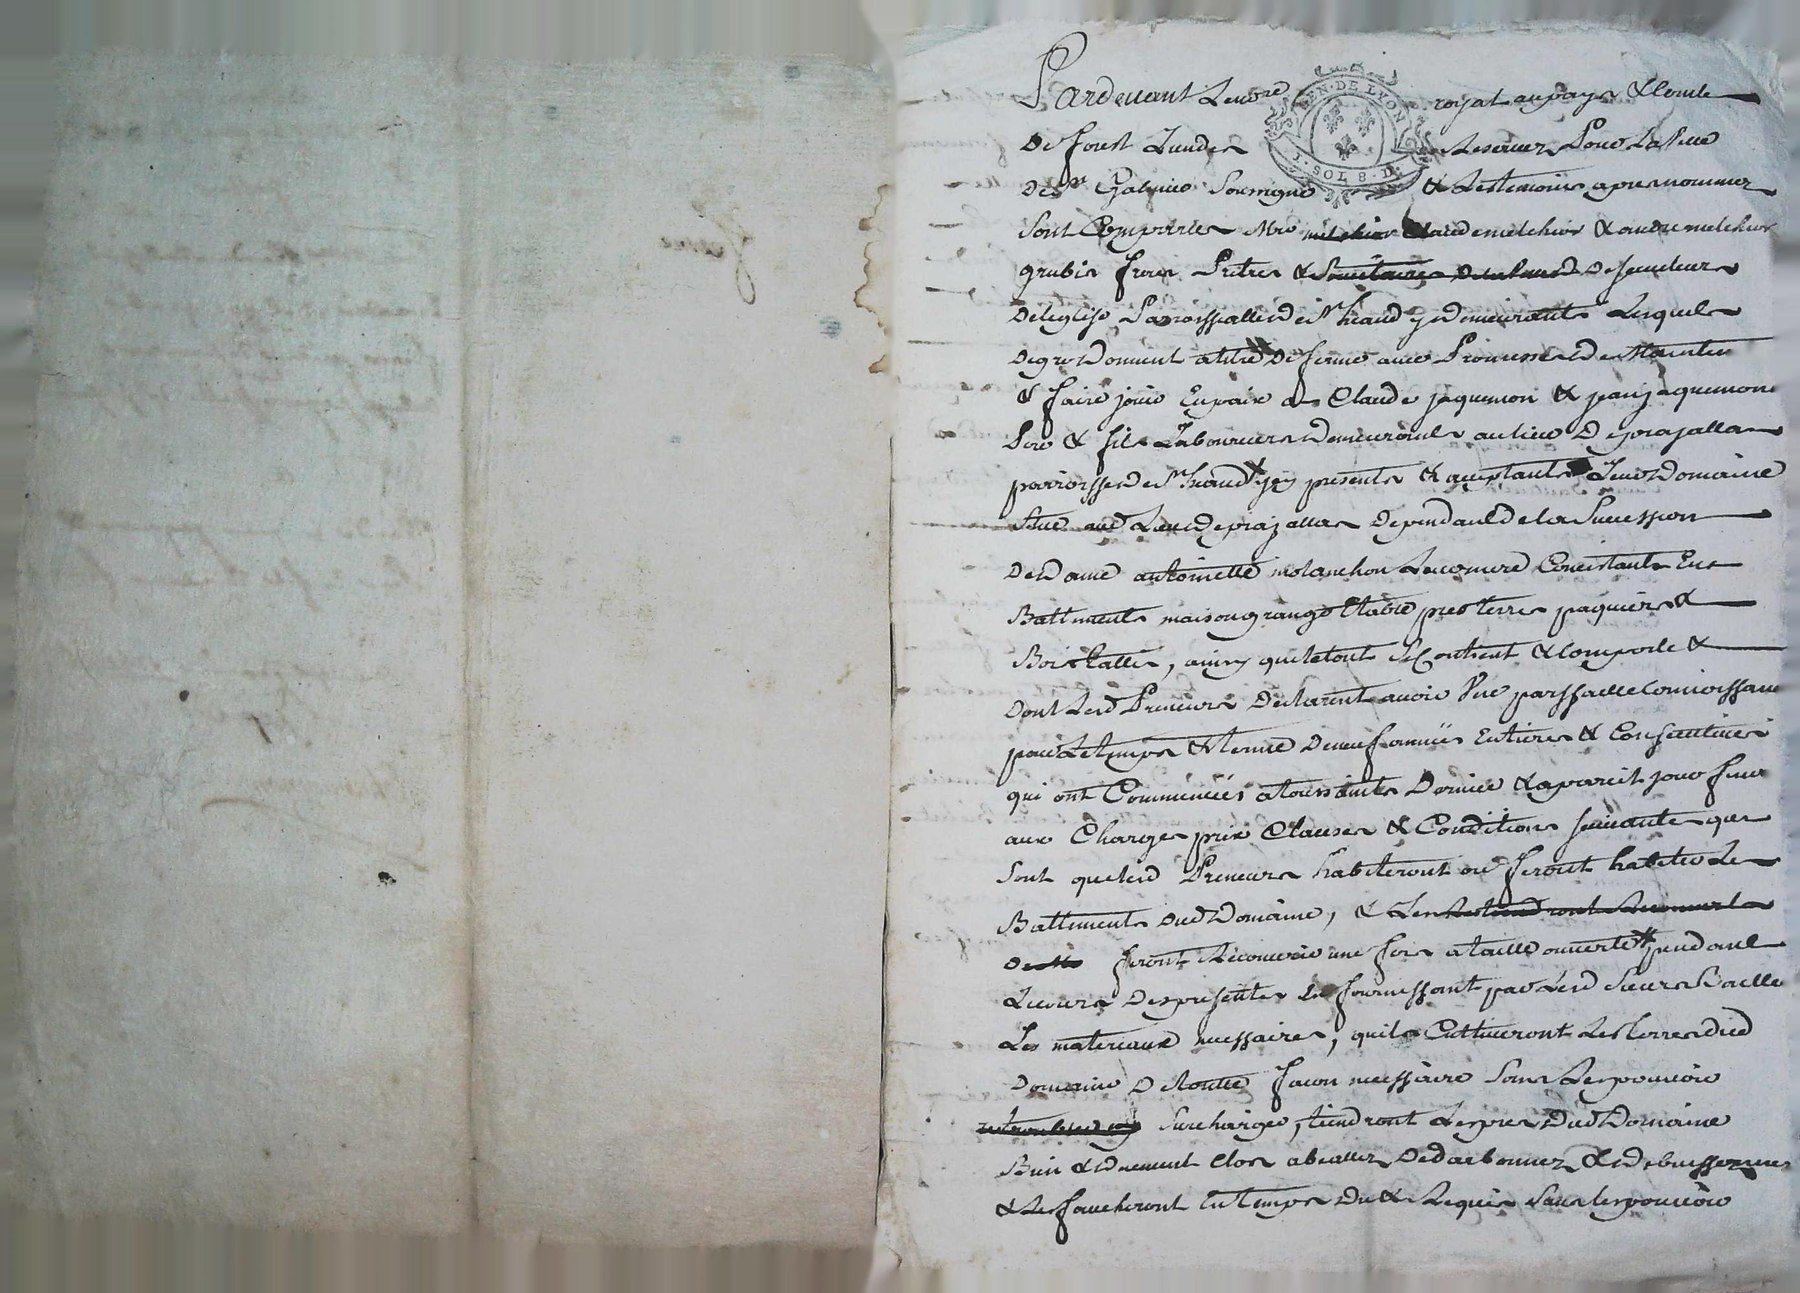 ferme
GEN · DE LYON
1 · SOL 8 · D
Pardevant Le no.re royal au pays & Comté
De forest
De St Galmier Soussigné & Les temoins apres nommez
Sont Comparus Mrs melchior Claude melchior & andre melchior
grubis freres Prêtres & Societaires Desserviteurs
De leglise Paroissialle de St heand y demeurants Lesquels
De gré Donnent a titre De ferme avec Promesse de Mainten
& faire jouir En paix a Claude jaquemon & jean jaquemon
Pere & fils Laboureurs Demeurants au lieu De prajallas
parroisse de St heand icy presents & acceptants Leur Domaine
Situé aud Lieu de prajallas Dependant de la Succession
De dame antoinette molanchon Leur mere Consistant En
Battiments maison grange Etable prés terres paquiers &
Bois taillis, ainsy que le tout Se Contient & Comporte &
Dont Lesd Preneurs Declarent avoir Eue parffaitte Connoissance
pour Le temps & terme De neuf années Entieres & Consecutives
qui ont Commencées a toussaints Dernier & a pareil jour finir
aux Charges prix Clauses & Conditions suivantes qui
Sont que lesd Preneurs habiteront ou feront habiter Les
Battiments dud Domaine, & Les
feront Recouvrir une fois a taille ouverte pendant
Le cours Des presentes En fournissant par Lesd Sieurs Bailleurs
Les materiaux necessaires, quils Cultiveront Les terres dud
Domaine De toutte facon necessaire Sans Les pouvoir
Surcharger, tiendront Les prés Dud Domaine
Bien & dument Clos
& Les faucheront En temps Du & Requis Sans les pouvoir